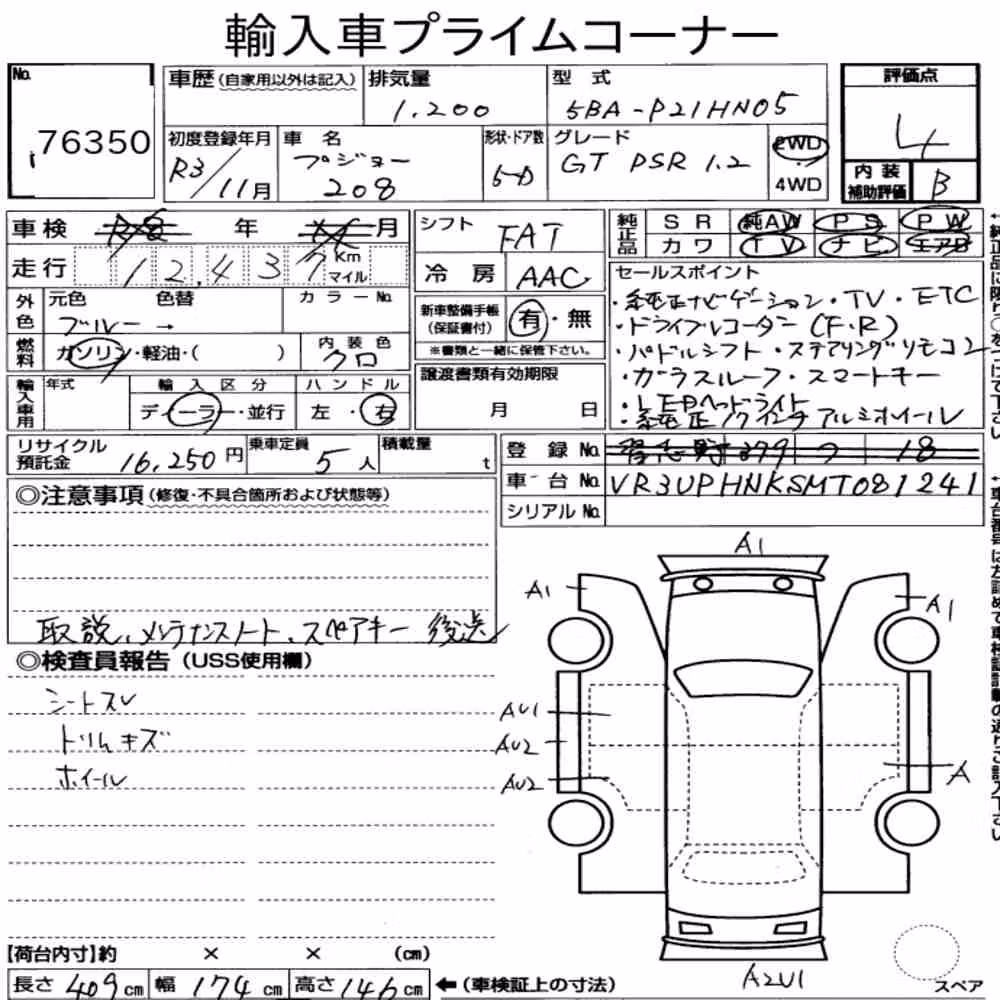 輸入車プライムコーナー
No.
76350
車歴(自家用以外は記入)
排気量
1.200
型式
5BA-P21HN05
評価点
4
初度登録年月
R3/11月
車名
プジョー
208
形状・ドア数
5-D
グレード
GT PSR 1.2
2WD
4WD
内装
補助評価
B
車検 年 月
シフト
FAT
純正品
SR 純AW PS PW
カワ TV ナビ エアB
走行 12,437 Km
マイル
冷房 AAC
セールスポイント
・純正ナビゲーション・TV・ETC
・ドライブレコーダー(F.R)
・パドルシフト・ステアリングリモコン
・ガラスルーフ・スマートキー
・LEDヘッドライト
・純正17インチアルミホイール
外色
元色 色替 カラーNo.
ブルー →
新車整備手帳
(保証書付)
有・無
※書類と一緒に保管下さい。
燃料
ガソリン・軽油・( )
内装色
クロ
譲渡書類有効期限
月 日
輸入車用
年式 輸入区分 ハンドル
ディーラー・並行 左・右
リサイクル
預託金
16,250円
乗車定員
5人
積載量
t
登録No. 399 18
車台No. VR3UPHNKSMT081241
シリアルNo.
◎注意事項(修復・不具合箇所および状態等)
取説、メンテナンスノート、スペアキー 後送
◎検査員報告(USS使用欄)
シートスレ
トリムキズ
ホイール
A1
A1
A1
AU1
AU2
AU2
A
A2U1
スペア
【荷台内寸】約 × × (cm)
長さ 409cm 幅 174cm 高さ 146cm ←(車検証上の寸法)